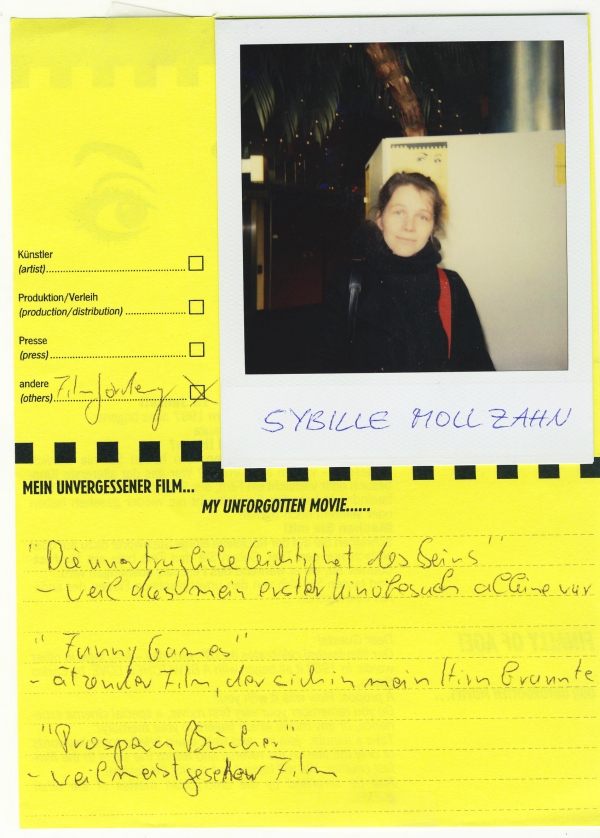 Künstler
(artist)
Produktion/Verleih
(production/distribution)
Presse
(press)
andere Filmförderung
(others)
SYBILLE MOLLZAHN
MEIN UNVERGESSENER FILM...
MY UNFORGOTTEN MOVIE......
"Die unerträgliche Leichtigkeit des Seins"
- weil dies mein erster Kinobesuch alleine war
"Funny Games"
- ätzender Film, der sich in mein Hirn brannte
"Prosperos Bücher"
- weil meistgesehener Film